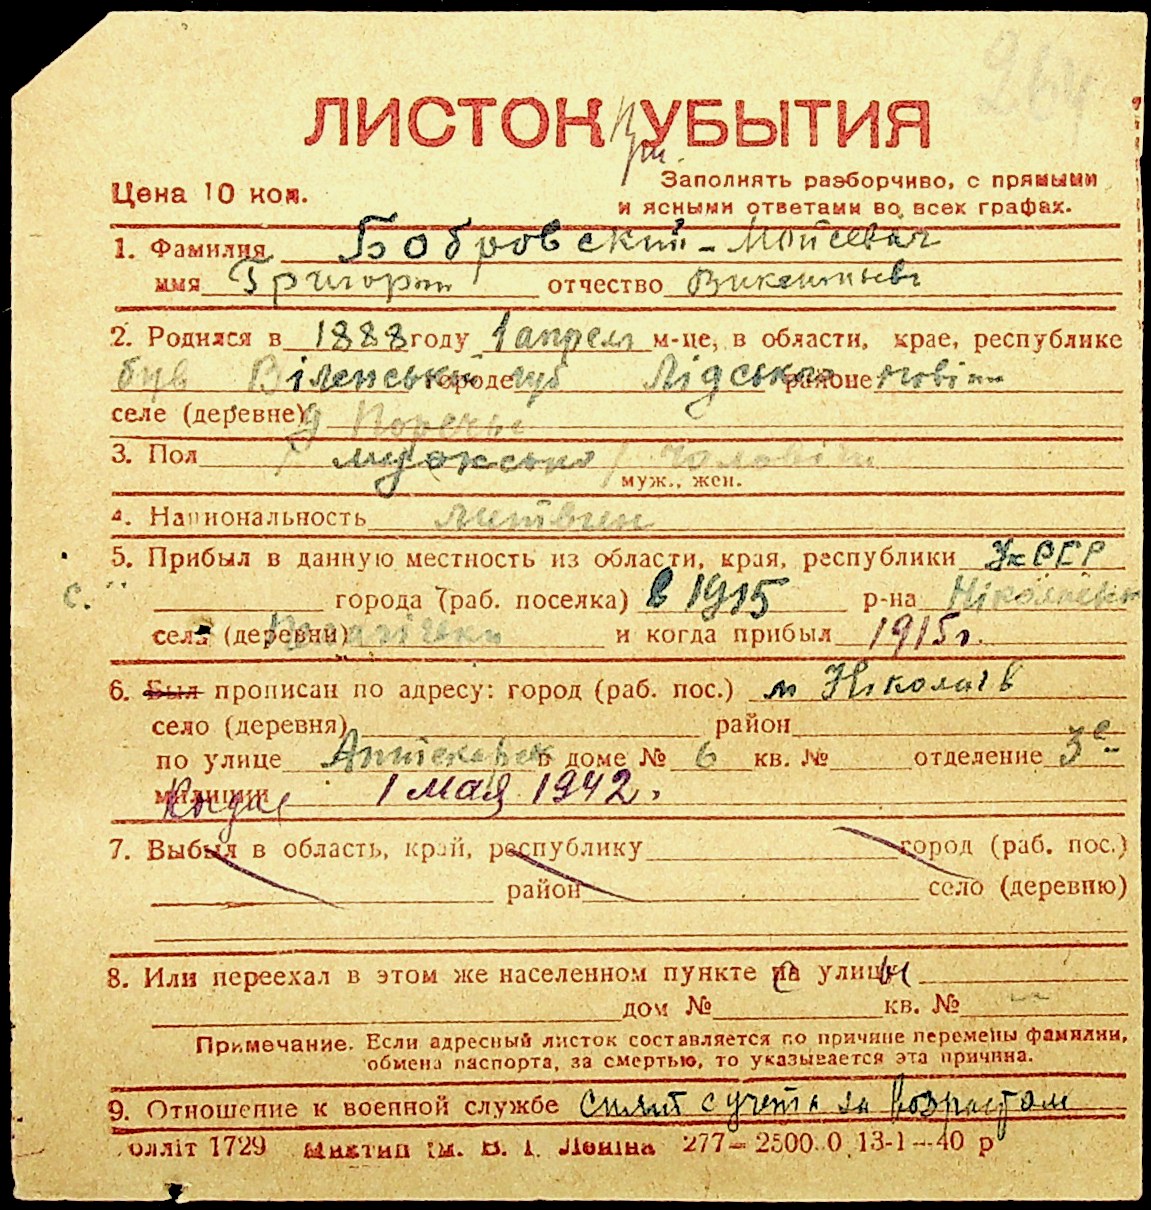 264
ЛИСТОК УБЫТИЯ
Цена 10 коп.
Заполнять разборчиво, с прямыми
и ясными ответами во всех графах.
1. Фамилия Бобровский - Мойсевич
имя Григорий отчество Викентьевич
2. Родился в 1888 году 1 апреля м-це, в области, крае, республике
був Віленський городе губ Лідського районе повіту
селе (деревне) д Поречье
3. Пол / мужсько / чоловіч
муж., жен.
4. Национальность литвин
5. Прибыл в данную местность из области, края, республики УкРСР
с. города (раб. поселка) в 1915 р-на
села (деревни) и когда прибыл 1915 г.
6. Был прописан по адресу: город (раб. пос.) м Ніколаїв
село (деревня) район
по улице Аптекарск в доме № 6 кв. № отделение 3е
милиции 1 мая 1942.
7. Выбыл в область, край, республику город (раб. пос.)
район село (деревню)
8. Или переехал в этом же населенном пункте на улицу
дом № кв. №
Примечание. Если адресный листок составляется по причине перемены фамилии,
обмена паспорта, за смертью, то указывается эта причина.
9. Отношение к военной службе снят с учета за возрастом
олліт 1729 Миктип ім. В. І. Леніна 277—2500.0 13-1—40 р